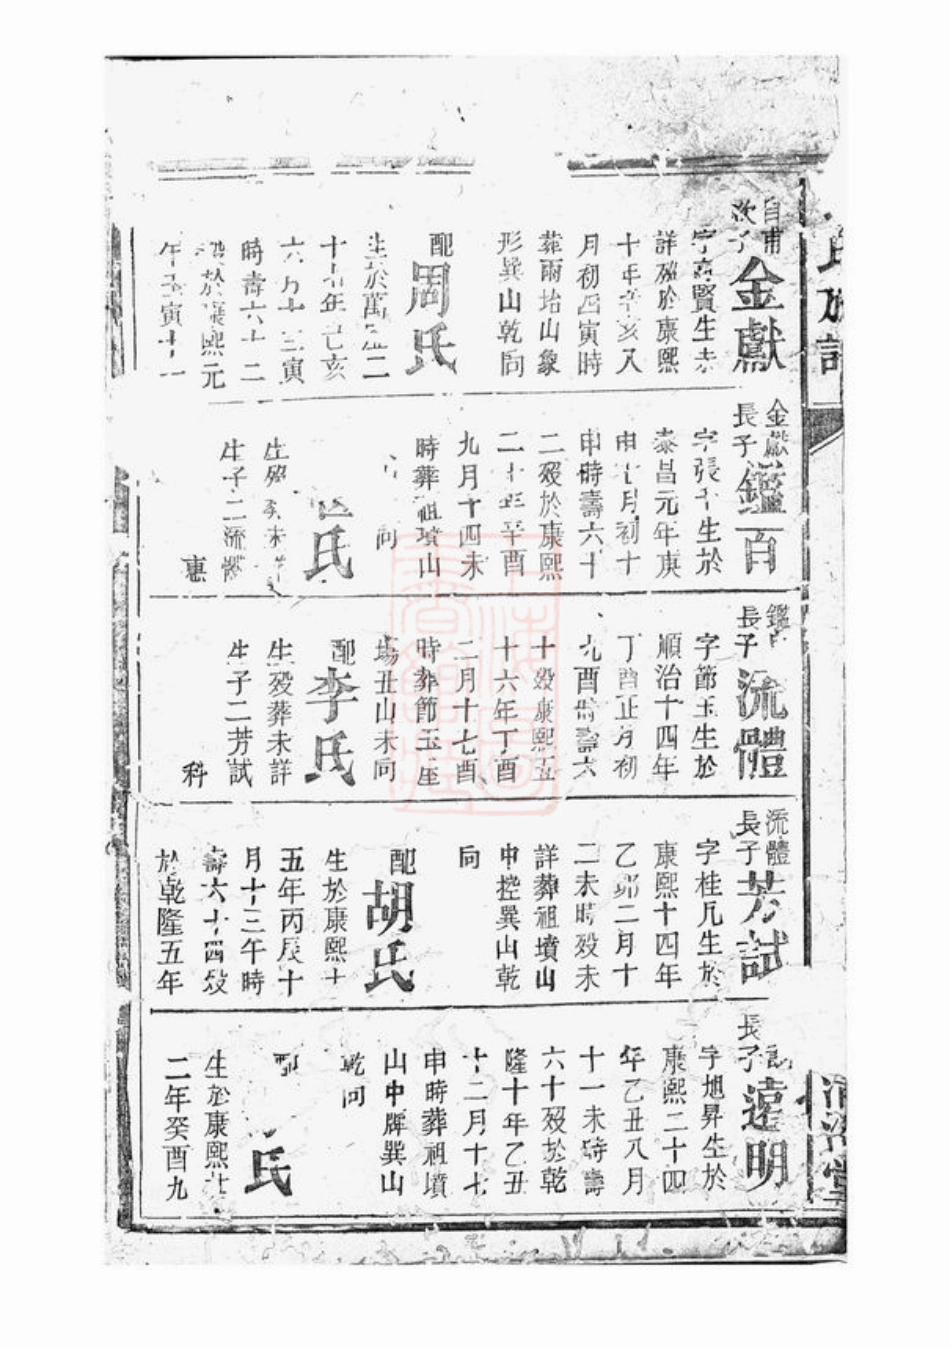 氏族譜
自甫
次子
金獻
字高賢生未
詳歿於康熙
十年辛亥八
月初四寅時
葬雨坮山象
形巽山乾向
配
周氏
生於萬歷二
十七年己亥
六月十三寅
時壽六十二
歿於康熙元
年壬寅十一
金獻
長子
鑑百
字張千生於
泰昌元年庚
申七月初十
申時壽六十
二歿於康熙
二十年辛酉
九月十四未
時葬祖墳山
向
氏
生歿葬未詳
生子二流體
惠
鑑百
長子
流體
字節玉生於
順治十四年
丁酉正月初
九酉時壽六
十歿康熙五
十六年丁酉
二月十七酉
時葬節玉座
塲丑山未向
配
李氏
生歿葬未詳
生子二芳試
科
流體
長子
芳試
字桂凡生於
康熙十四年
乙卯二月十
二未時歿未
詳葬祖墳山
中控巽山乾
向
配
胡氏
生於康熙十
五年丙辰十
月十三午時
壽六十四歿
於乾隆五年
長子
遠明
字旭昇生於
康熙二十四
年乙丑八月
十一未時壽
六十歿於乾
隆十年乙丑
十二月十七
申時葬祖墳
山中牌巽山
乾向
配
氏
生於康熙卅
二年癸酉九
堂